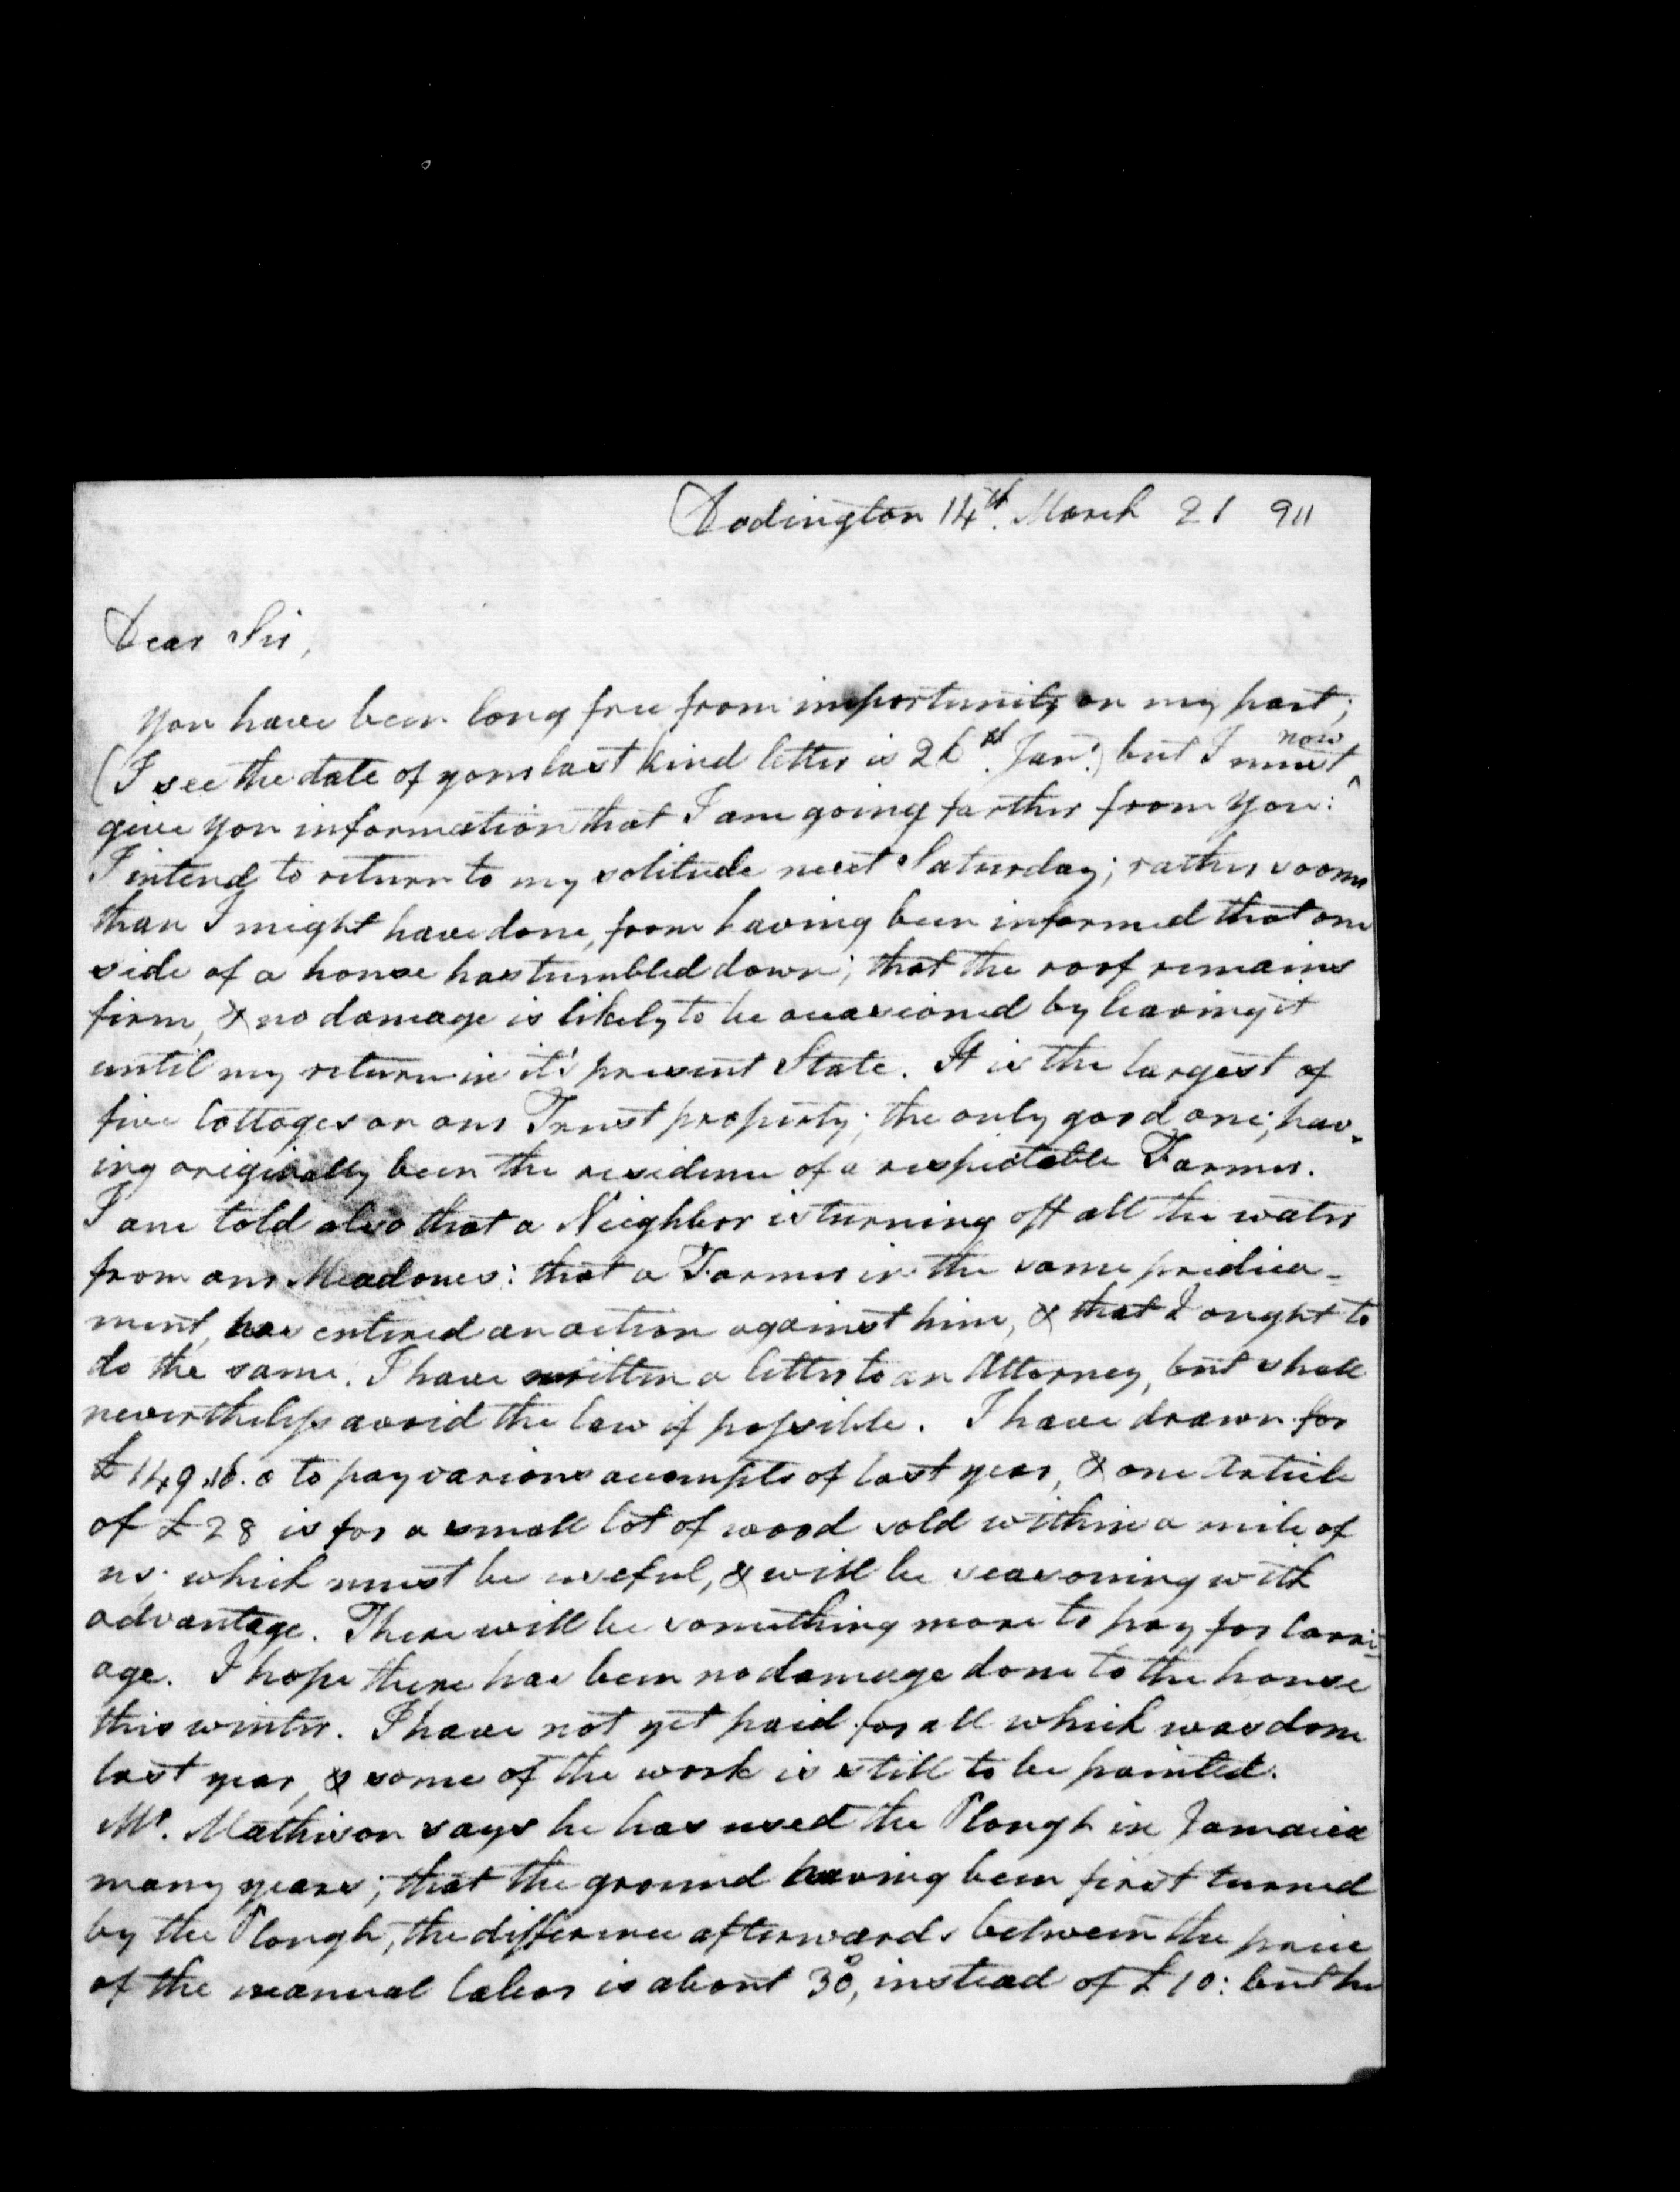 Dodington 14th. March 21 911
Dear Sir,
You have been long free from importunity on my part;
(I see the date of your last kind letter is 26th. Jany.) but I must now
give you information that I am going farther from you:
I intend to return to my solitude next Saturday; rather sooner
than I might have done, from having been informed that one
side of a house has tumbled down; that the roof remains
firm, & no damage is likely to be occasioned by leaving it
until my return in it's present State. It is the largest of
five Cottages on our Trust property; the only good one; hav-
ing originally been the residence of a respectable Farmer.
I am told also that a Neighbor is turning off all the water
from our Meadows: that a Farmer in the same predica-
ment, has entered an action against him, & that I ought to
do the same. I have written a letter to an Attorney, but shall
nevertheless avoid the law if possible. I have drawn for
£149.16.0 to pay various accompts of last year, & one Article
of £28 is for a small lot of wood sold within a mile of
us; which must be useful, & will be seasoning with
advantage. There will be something more to pay for Carri-
age. I hope there has been no damage done to the house
this winter. I have not yet paid for all which was done
last year, & some of the work is still to be painted.
Mr. Mathison says he has used the Plough in Jamaica
many years; that the ground having been first turned
by the Plough, the difference afterwards between the price
of the manual labor is about 30, instead of £10: but he